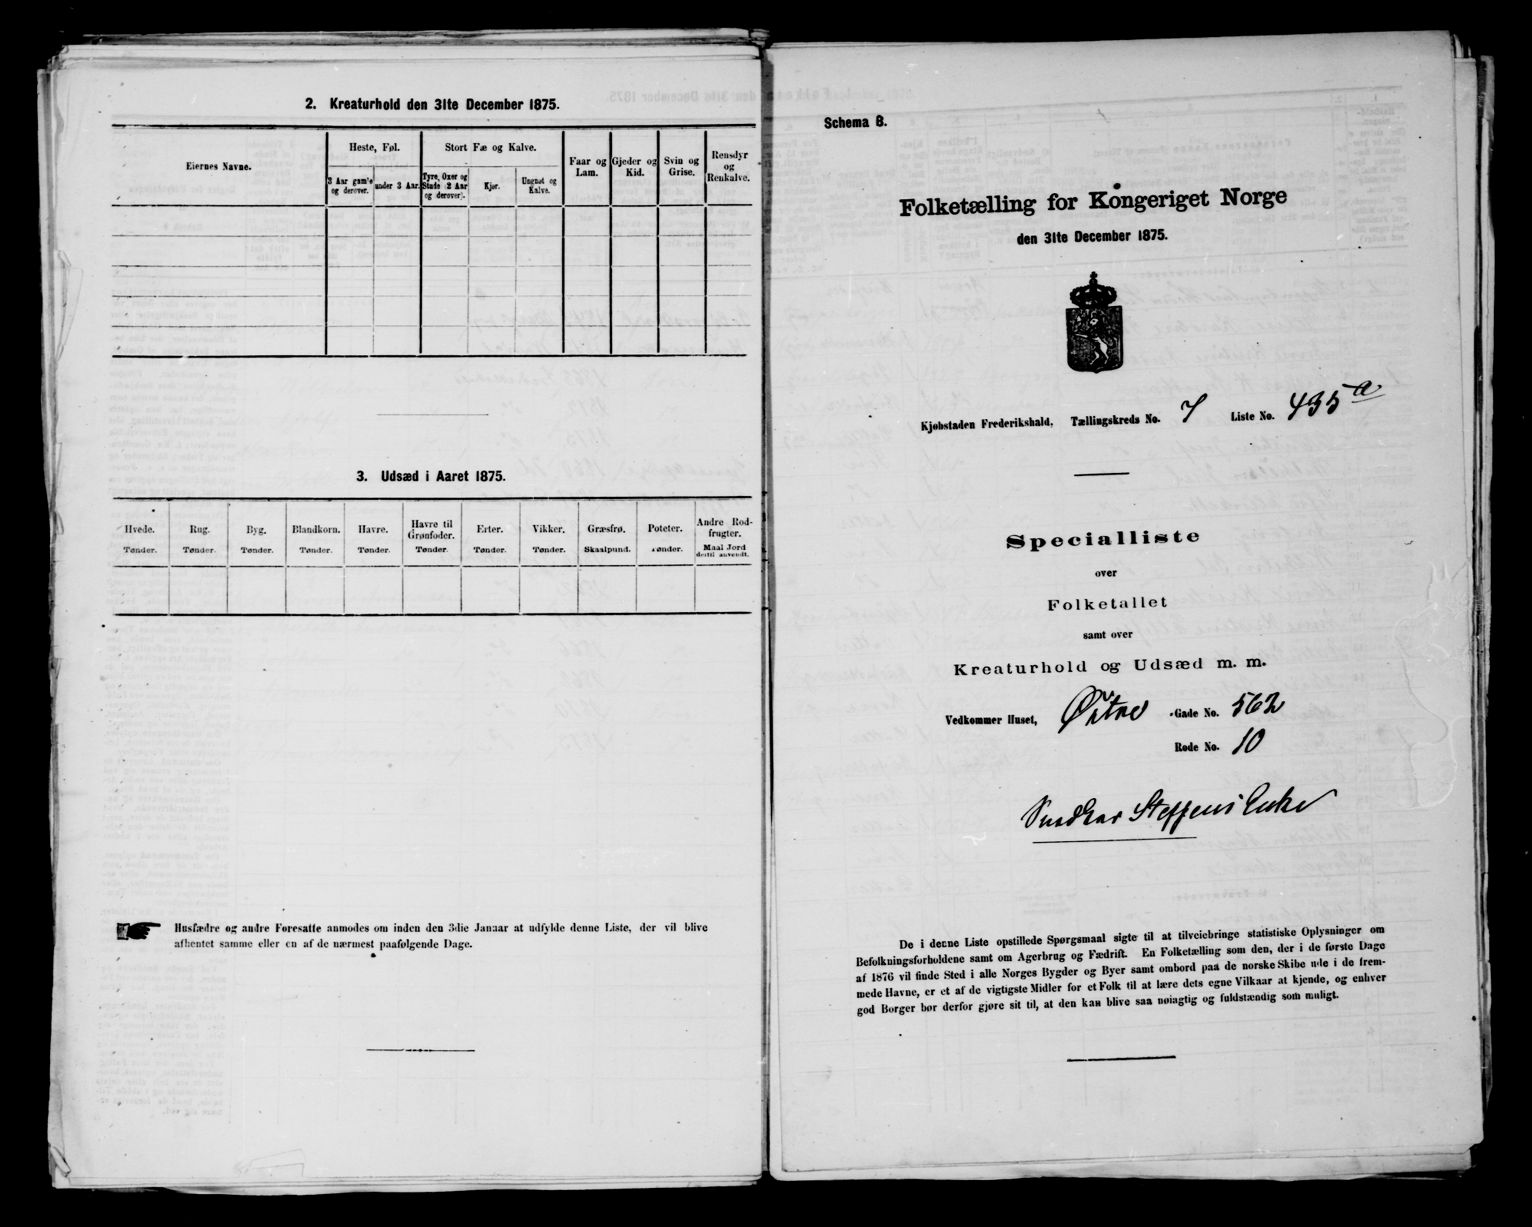 2. Kreaturhold den 31te December 1875.
Eiernes Navne.
Heste, Føl.
Stort Fæ og Kalve.
Faar og Lam.
Gjeder og Kid.
Svin og Grise.
Rensdyr og Renkalve.
3 Aar gam'e og derover.
under 3 Aar.
Tyre, Oxer og Stude (2 Aar og derover).
Kjør.
Ungnøt og Kalve.
3. Udsæd i Aaret 1875.
Hvede.
Rug.
Byg.
Blandkorn.
Havre.
Havre til Grønfoder.
Erter.
Vikker.
Græsfrø.
Poteter.
Andre Rodfrugter.
Tønder.
Tønder.
Tønder.
Tønder.
Tønder.
Tønder.
Tønder.
Tønder.
Skaalpund.
Tønder.
Maal Jord dertil anvendt.
Husfædre og andre Foresatte anmodes om inden den 3die Januar at udfylde denne Liste, der vil blive
afhentet samme eller en af de nærmest paafølgende Dage.
Schema B.
Folketælling for Kongeriget Norge
den 31te December 1875.
Kjøbstaden Frederikshald, Tællingskreds No. 7 Liste No. 435 a
Specialliste
over
Folketallet
samt over
Kreaturhold og Udsæd m. m.
Vedkommer Huset, Østre Gade No. 562
Rode No. 10
Snedker Steffens Enke
De i denne Liste opstillede Spørgsmaal sigte til at tilveiebringe statistiske Oplysninger om
Befolkningsforholdene samt om Agerbrug og Fædrift. En Folketælling som den, der i de første Dage
af 1876 vil finde Sted i alle Norges Bygder og Byer samt ombord paa de norske Skibe ude i de frem-
mede Havne, er et af de vigtigste Midler for et Folk til at lære dets egne Vilkaar at kjende, og enhver
god Borger bør derfor gjøre sit til, at den kan blive saa nøiagtig og fuldstændig som muligt.